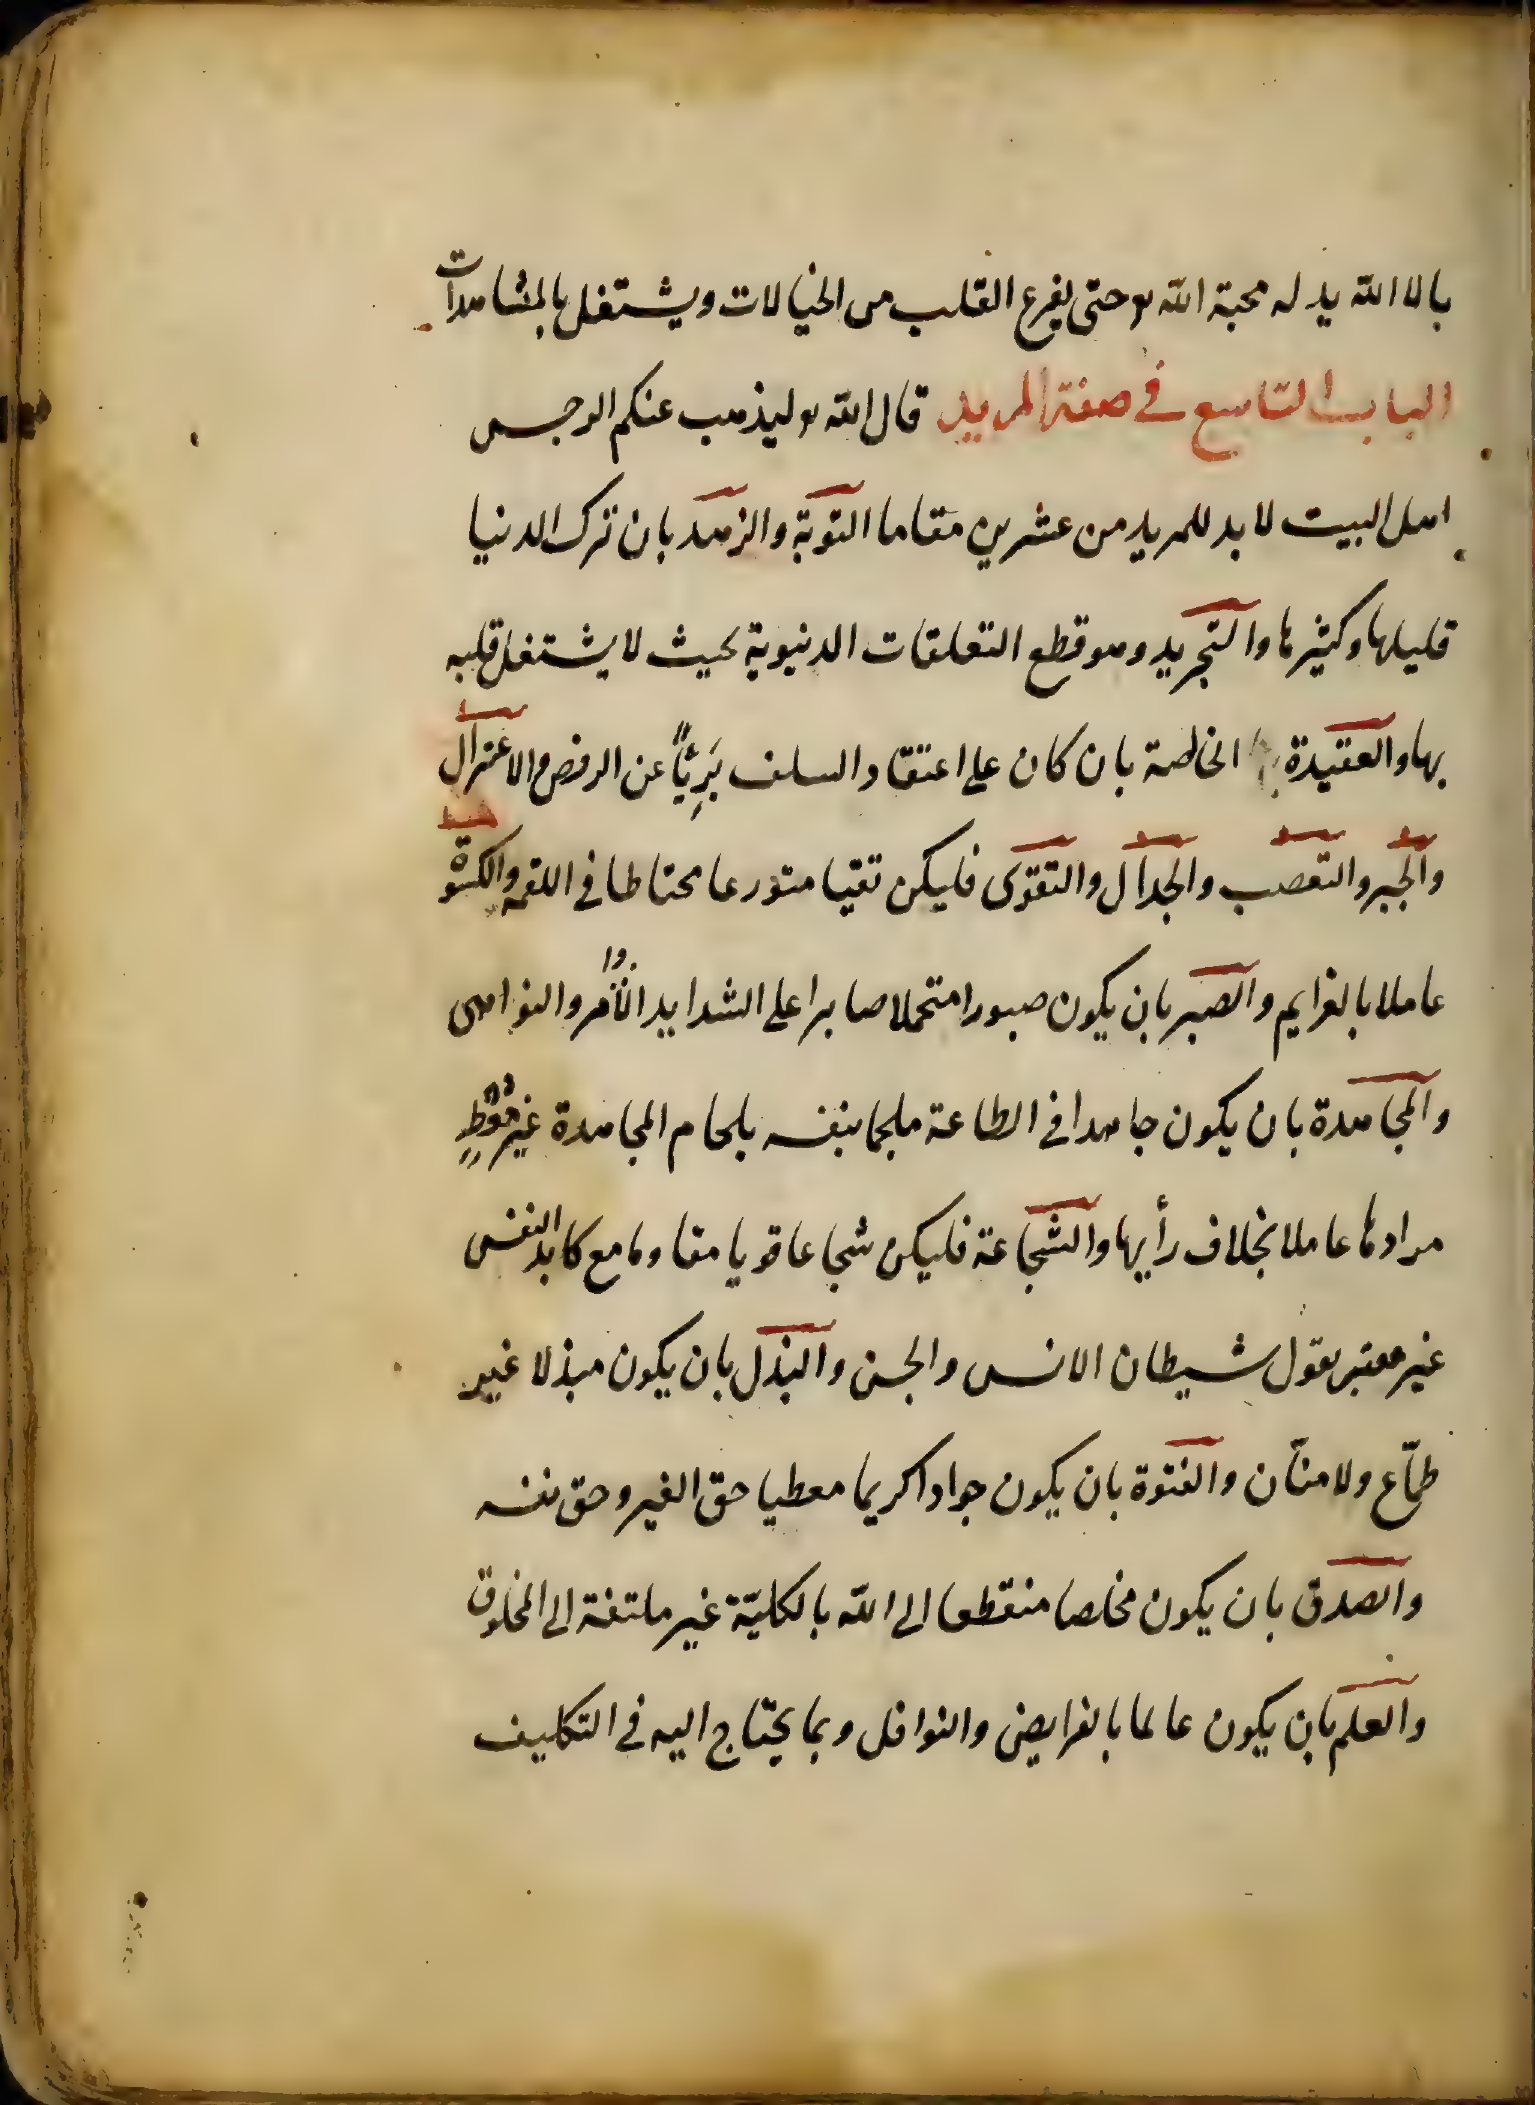 بالا الله يدله محبة الله تع حتى يفرغ القلب من الخيالات ويشتغل بالمشاهدات
الباب التاسع في صفة المريد قال الله تع ليذهب عنكم الرجس
اهل البيت لا بد للمريد من عشرين مقاما التوبة والزهد بان ترك الدنيا
قليلها وكثيرها والتجريد وهو قطع التعلقات الدنيوية بحيث لا يشتغل قلبه
بها والعقيدة الخالصة بان كان على اعتقاد السلف بَرِيّاً عن الرفض والاعتزال
والجبر والتعصب والجدال والتقوى فليكن تقيا متورعا محتاطا في اللقمة والكسوة
عاملا بالعزايم والصبر بان يكون صبورا متحملا صابرا على الشدايد الأوامر والنواهى
والمجاهدة بان يكون جاهدا في الطاعة ملجما بنفسه بلجام المجاهدة غير معطٍ
مرادها عاملا بخلاف رأيها والشجاعة فليكن شجاعا قويا مقاوما مع كابد النفس
غير معتبر بقول شيطان الانس والجن والبذل بان يكون مبذلا غير
طمّاع ولا منّان والفتوة بان يكون جوادا كريما معطيا حق الغير وحق نفسه
والصدق بان يكون مخلصا منقطعا الى الله بالكليّة غير ملتفتة الى المخلوق
والعلم بان يكون عالما بالفرايض والنوافل وبما يحتاج اليه في التكليف